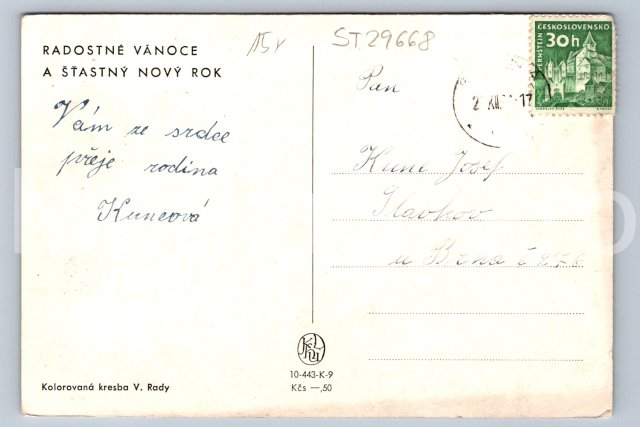 RADOSTNÉ VÁNOCE
A ŠŤASTNÝ NOVÝ ROK
Vám ze srdce
přeje rodina
Kuncová
Kolorovaná kresba V. Rady
15,-
ST29668
10-443-K-9
Kčs —,50
ČESKOSLOVENSKO
30h
2 XII. 17
Pan
Josef
Slavkov
u Brna č